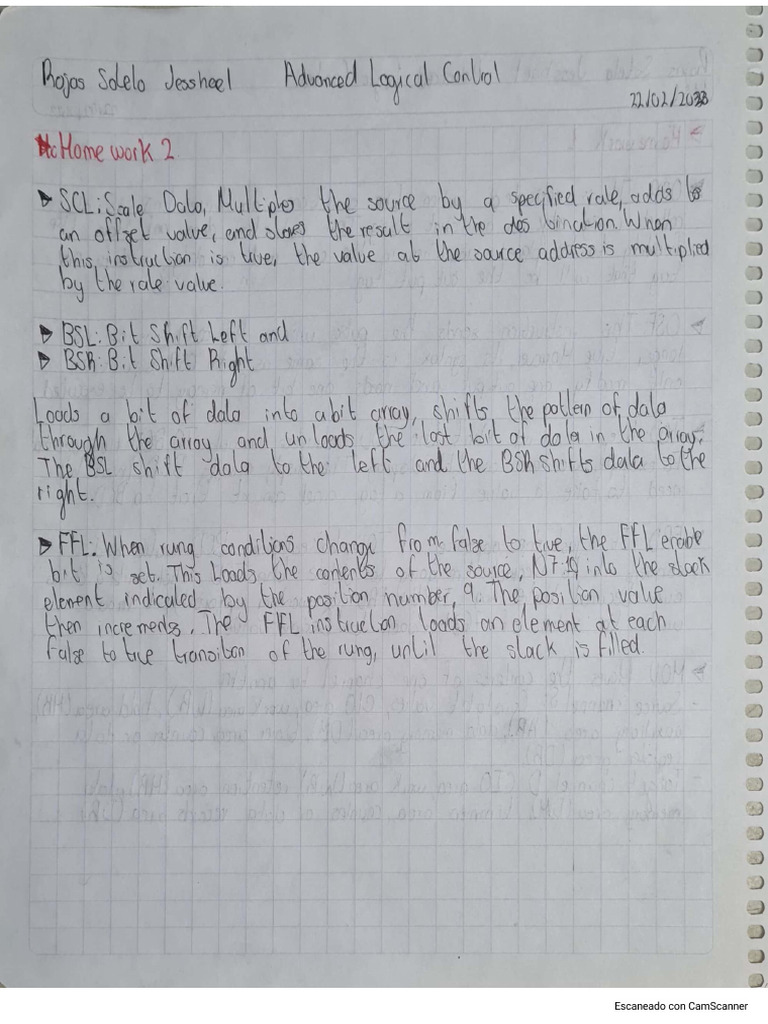 Rojas Sotelo Jessheel Advanced Logical Control
22/02/2023
Home work 2
▶ SCL: Scale Data, Multiples the source by a specified rate, adds to
an offset value, and stores the result in the des tination. When
this, instruction is true, the value at the source address is multiplied
by the rate value.
▶ BSL: Bit Shift Left and
▶ BSR: Bit Shift Right
Loads a bit of data into a bit array, shifts the pattern of data
through the array and un loads the last bit of data in the array.
The BSL shift data to the left and the BSR shifts data to the
right.
▶ FFL: When rung conditions change from false to true, the FFL enable
bit is set. This Loads the contents of the source, N7:19 into the stack
element indicated by the position number, 9. The position value
then increments. The FFL instruction loads an element at each
false to true transition of the rung, until the stack is filled.
Escaneado con CamScanner